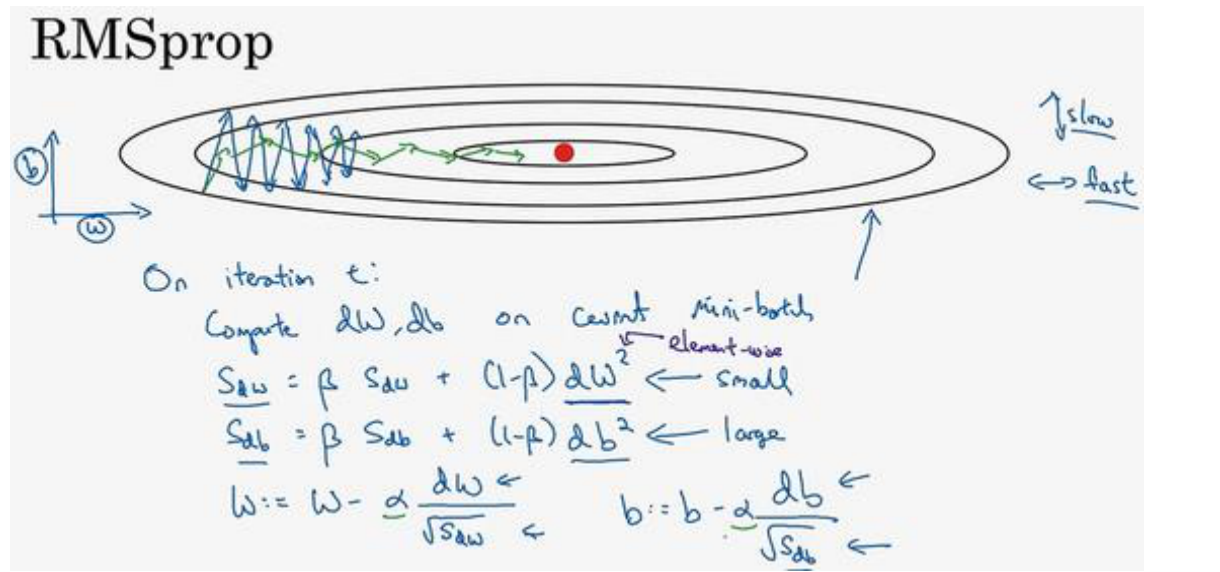 RMSprop
slow
b
fast
w
On iteration t:
Compute dW, db on current mini-batch
element-wise
Sdw = β Sdw + (1-β) dW² ← small
Sdb = β Sdb + (1-β) db² ← large
W := W - α dW/√Sdw ← ←
b := b - α db/√Sdb ← ←